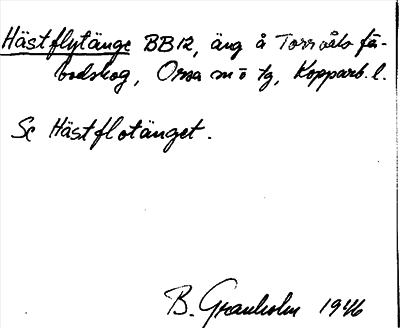 Hästflytänge BB12, äng å Torrvåls fä-
bodskog, Orsa sn o tg, Kopparb. l.
Se Hästflotänget.
B. Granholm 1946